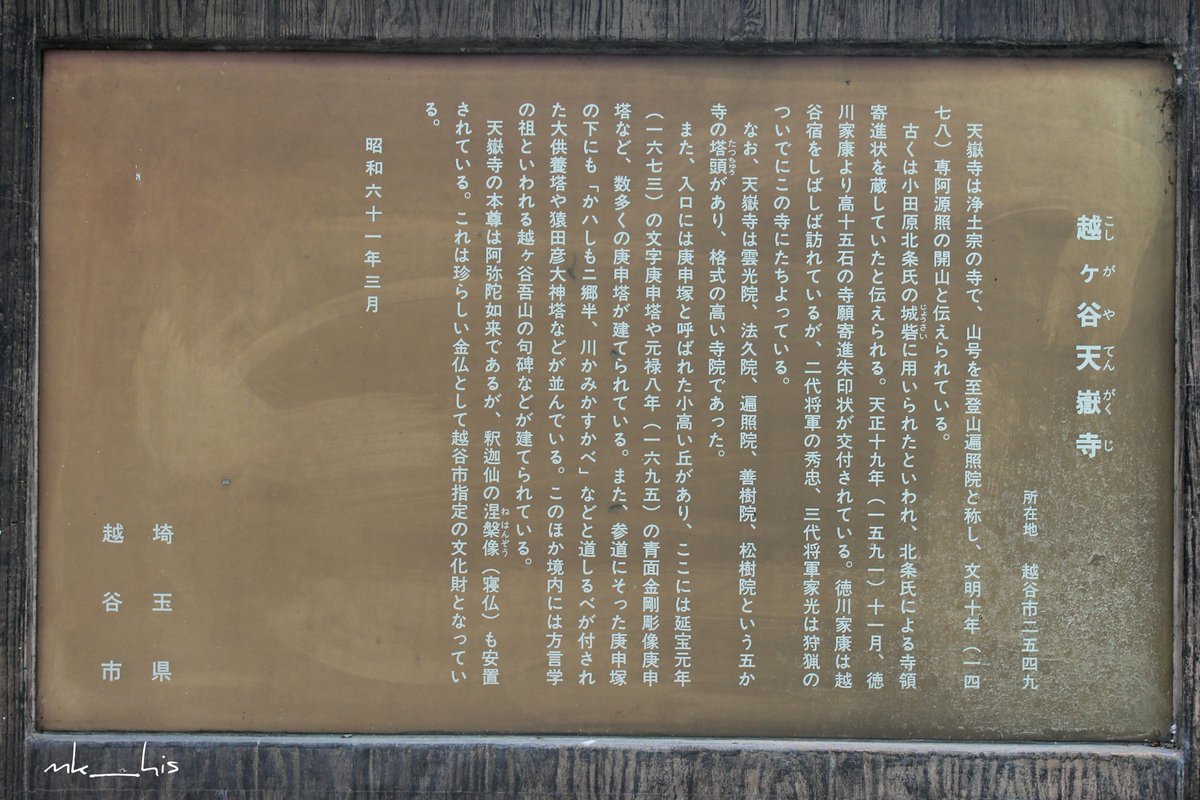 越ヶ谷天嶽寺
こしがやてんがくじ
所在地　越谷市二五四九
天嶽寺は浄土宗の寺で、山号を至登山遍照院と称し、文明十年（一四
七八）専阿源照の開山と伝えられている。
古くは小田原北条氏の城砦に用いられたといわれ、北条氏による寺領
じょうさい
寄進状を蔵していたと伝えられる。天正十九年（一五九一）十一月、徳
川家康より高十五石の寺願寄進朱印状が交付されている。徳川家康は越
谷宿をしばしば訪れているが、二代将軍の秀忠、三代将軍家光は狩猟の
ついでにこの寺にたちよっている。
なお、天嶽寺は雲光院、法久院、遍照院、善樹院、松樹院という五か
寺の塔頭があり、格式の高い寺院であった。
たっちゅう
また、入口には庚申塚と呼ばれた小高い丘があり、ここには延宝元年
（一六七三）の文字庚申塔や元禄八年（一六九五）の青面金剛彫像庚申
塔など、数多くの庚申塔が建てられている。また、参道にそった庚申塚
の下にも「かハしも二郷半、川かみかすかべ」などと道しるべが付され
た大供養塔や猿田彦大神塔などが並んでいる。このほか境内には方言学
の祖といわれる越ヶ谷吾山の句碑などが建てられている。
天嶽寺の本尊は阿弥陀如来であるが、釈迦仙の涅槃像（寝仏）も安置
ねはんぞう
されている。これは珍らしい金仏として越谷市指定の文化財となってい
る。
昭和六十一年三月
埼玉県
越谷市
mk__his